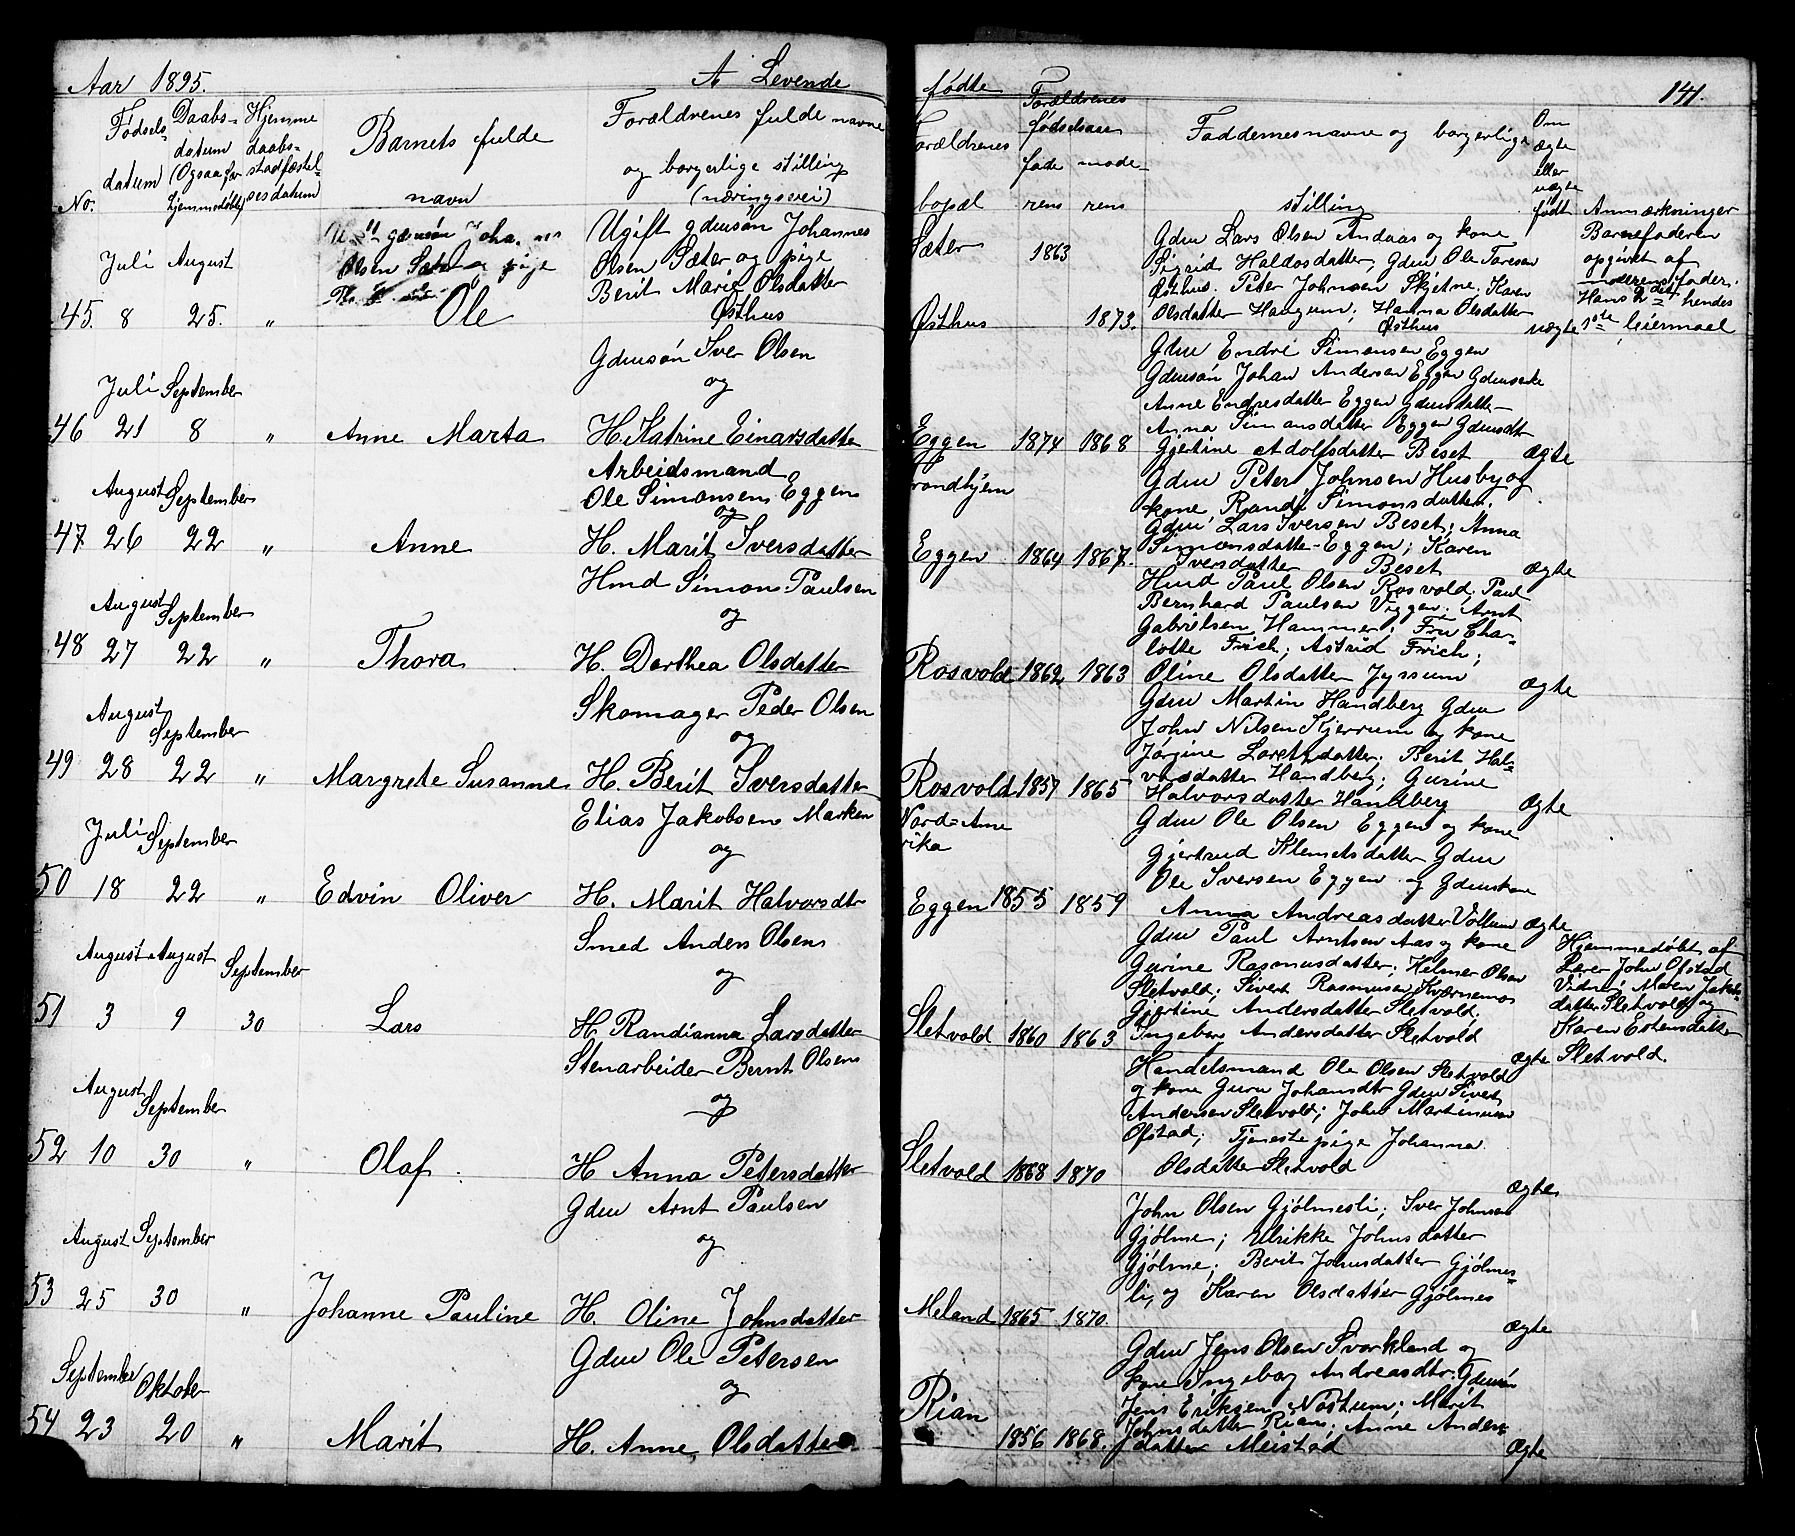 Aar 1895.
A Levende
Fødsels-
datum
Daabs-
datum
(Ogsaa for
hjemmedøbte)
Hjemme
daabs-
stadfæstel-
sesdatum
Barnets fulde
navn
Forældrenes fulde navne
og borgerlige stilling
(næringsvei)
No.
Juli August
45. 8 25. "
Ole
Ugift gdmsøn Johannes
Olsen Sæter og pige
Berit Marie Olsdatter
Østhus
Juli September
46 21 8 " Anne Marta
Gdmsøn Iver Olsen
og
H. Katrine Einarsdatter
August September
47 26 22 " Anne
Arbeidsmand
Ole Simonsen Eggen
og
H. Marit Iversdatter
August September
48 27 22 " Thora
Hmd Simon Paulsen
og
H. Dorthea Olsdatter
August September
49 28 22 " Margrete Susanne
Skomager Peder Olsen
og
H. Berit Iversdatter
Juli September
50 18 22 " Edvin Oliver
Elias Jakobsen Marken
og
H. Marit Halvorsdtr
August August September
51 3 9 30 Lars
Smed Anders Olsen
og
H. Randianna Larsdatter
August September
52 10 30 " Olaf.
Stenarbeider Bernt Olsen
og
H Anna Petersdatter
August September
53 25 30 " Johanne Pauline
Gdm Arnt Paulsen
og
H. Oline Johnsdatter
September Oktober
54 23 20 " Marit
Gdm Ole Petersen
og
H. Anne Olsdatter
fødte
141.
Forældrenes
bopæl
Forældrenes
fødselsaar
fade mode-
rens rens
Faddernes navne og borgerlige
stilling
Om
ægte
eller
uægte
født
Anmærkninger
Sæter 1863
Østhus 1873.
Gdm Lars Olsen Andaas og kone
Sigrid Haldosdatter; Gdm Ole Toresen
Østhus. Peter Johnsen Skjetne. Karen
Olsdatter Haugum; Hanna Olsdatter
Østhus
uægte
Barnefaderen
opgivet af
moderens fader.
Hans 2det hendes
1ste leiermaal
Eggen 1874 1868
Gdm Endre Simonsen Eggen
Gdmsøn Johan Andersen Eggen Gdmenke
Anne Endresdatter Eggen Gdmsdatter
Anna Simonsdatter Eggen Gdmsdtr
Gjertine Adolfsdatter Beset
ægte
Trondhjem
Eggen 1864 1867.
Gdm Peter Johnsen Husby og
kone Randi Simonsdatter.
Gdm Lars Iversen Beset; Anna
Simonsdatter Eggen; Karen
Iversdatter Beset
ægte
Rosvold 1862 1863
Hmd Paul Olsen Rosvold; Paul
Bernhard Paulsen Viggen; Arnt
Gabrilsen Hammer; Fru Char-
lotte Frich; Astrid Frich;
Oline Olsdatter Jyssum
ægte
Rosvold 1857 1865
Gdm Martin Handberg Gdm
John Nilsen Skjerrum og kone
Jørgine Loretsdatter; Berit Hal-
vorsdatter Handberg; Gurine
Halvorsdatter Handberg
ægte
Nord-Ame
rika
Eggen 1855 1859
Gdm Ole Olsen Eggen og kone
Gjertrud Klemetsdatter Gdm
Ole Iversen Eggen og Gdmskone
Anna Andreasdatter Vollum
ægte
Sletvold 1860 1863
Gdm Paul Arntsen Aas og kone
Gurine Rasmusdatter; Helmer Olsen
Sletvold; Sivert Rasmusen Kværnemo
Gjertine Andersdatter Sletvold;
Ingeborg Andersdatter Sletvold
ægte
Hjemmedøbt af
Lærer John Ofstad
Vidner Maren Jakobs-
datter Sletvold og
Karen Estensdatter
Sletvold.
Sletvold 1868 1870
Handelsmand Ole Olsen Sletvold
og kone Guru Johansdtr Gdm Sivert
Andersen Sletvold; John Martinusen
Ofstad; Tjenestepige Johanna
Olsdatter Sletvold
ægte
Meland 1865 1870.
John Olsen Gjølmesli; Iver Johnsen
Gjølme; Ulrikke Johnsdatter
Gjølme; Berit Johnsdatter Gjølmes-
li, og Karen Olsdatter Gjølmes
ægte
Rian
1856 1868.
Gdm Jens Olsen Svorkland og
kone Ingebor Andreasdtr. Gdmsøn
Jens Eriksen Nostum; Marit
Johnsdatter Rian; Anne Anders-
datter Meistad
ægte